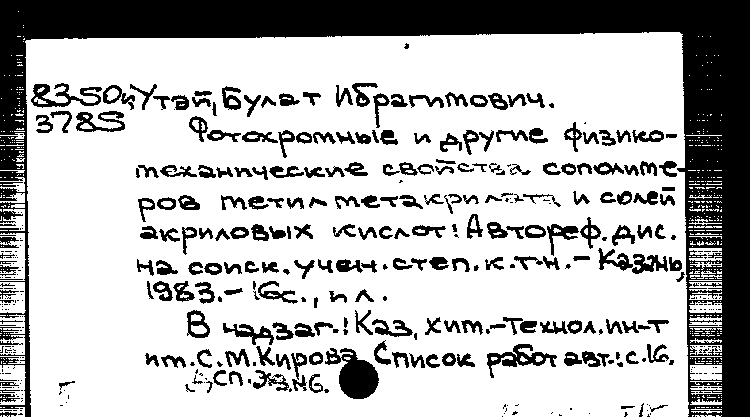 83-50к Утэй, Булат Ибрагимович.
3785 Фотохромные и другие физико-
механические свойства сополиме-
ров метилметакрилата и солей
акриловых кислот: Автореф. дис.
на соиск. учен. степ. к.т.н. - Казань,
1983. - 16с., ил.
В надзаг.: Каз, хим.-технол. ин-т
им. С.М. Кирова. Список работ авт.: с.16.
Дсп. Экз.№6.